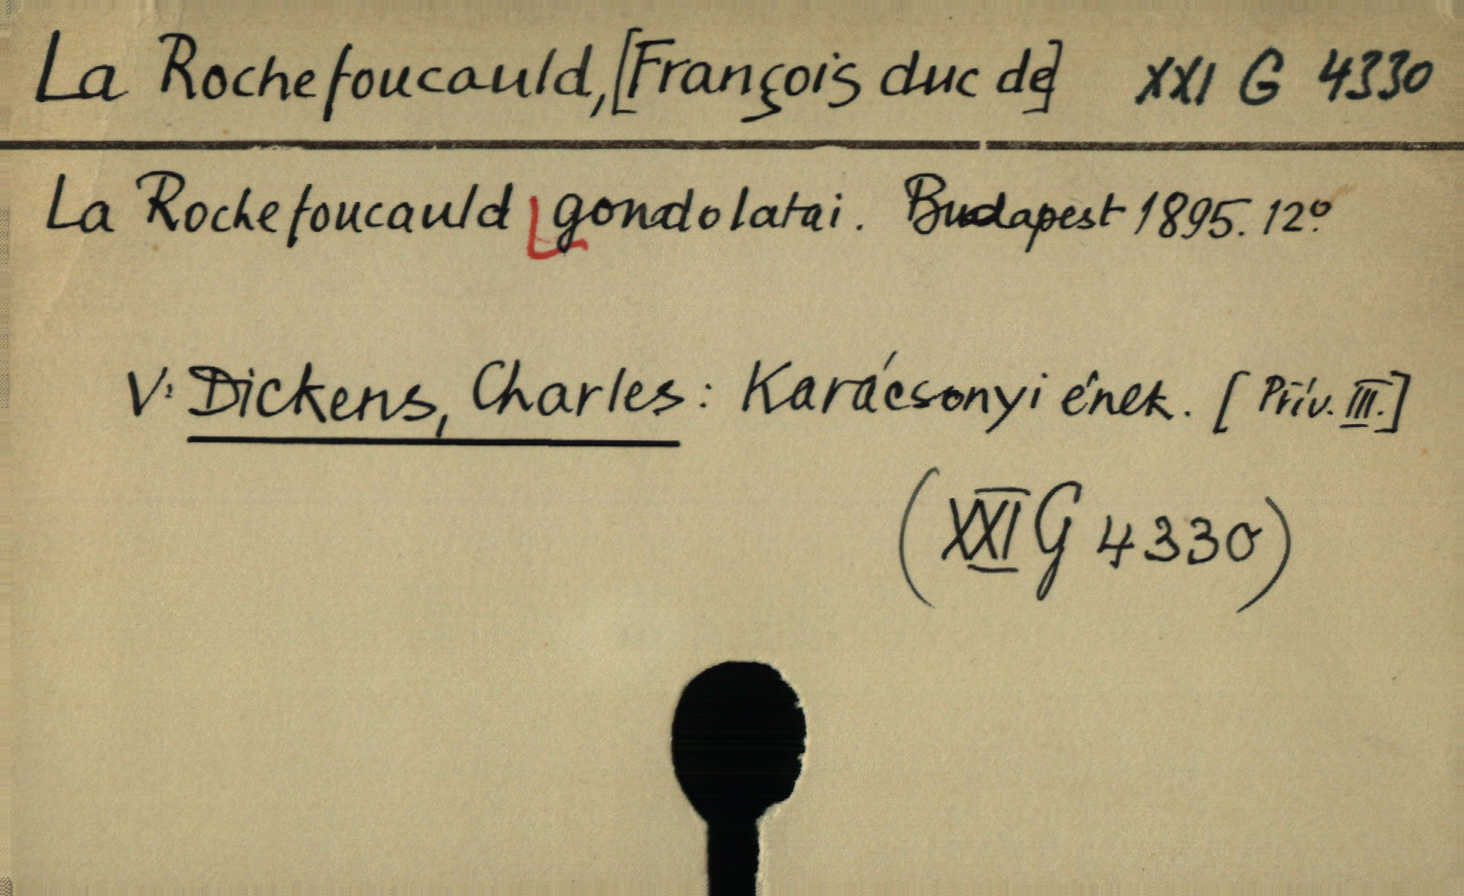 La Rochefoucauld, [François duc de] XXI G 4330
La Rochefoucauld gondolatai. Budapest 1895. 12º.
V: Dickens, Charles: Karácsonyi ének. [Přív. III.]
(XXI G 4330)